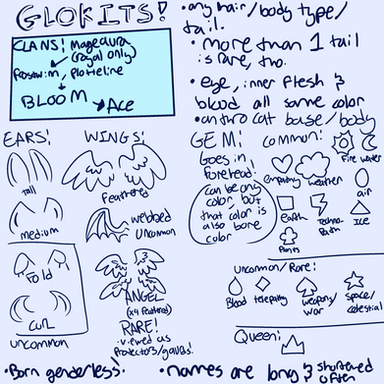 GLOKITS!
CLANS:
(royal only)
BLOOM
Ace
• any hair/body type/
tail.
• more than 1 tail
is rare, tho.
• eye, inner flesh &
blood all same color
• anthro cat base/body
EARS:
tall
medium
Fold
CURL
uncommon
WINGS:
Feathered
webbed
uncommon
ANGEL
(x4 feathered)
RARE!
viewed as
GEM:
Goes in
forehead!
can be any
color, but
that color is
also bone
color
Common:
Fire
water
empathy
weather
air
Earth
ICE
Plants
Uncommon/Rare:
Blood
telepathy
weapon/
war
Space/
celestial
Queen:
• Born genderless.
• names are long & shortened
often